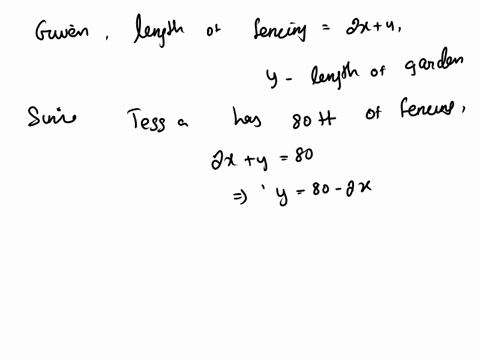 Given, length of fencing = 2x+y,
y - length of garden
Since Tessa has 80 ft of fencing,
2x + y = 80
⇒ y = 80 - 2x